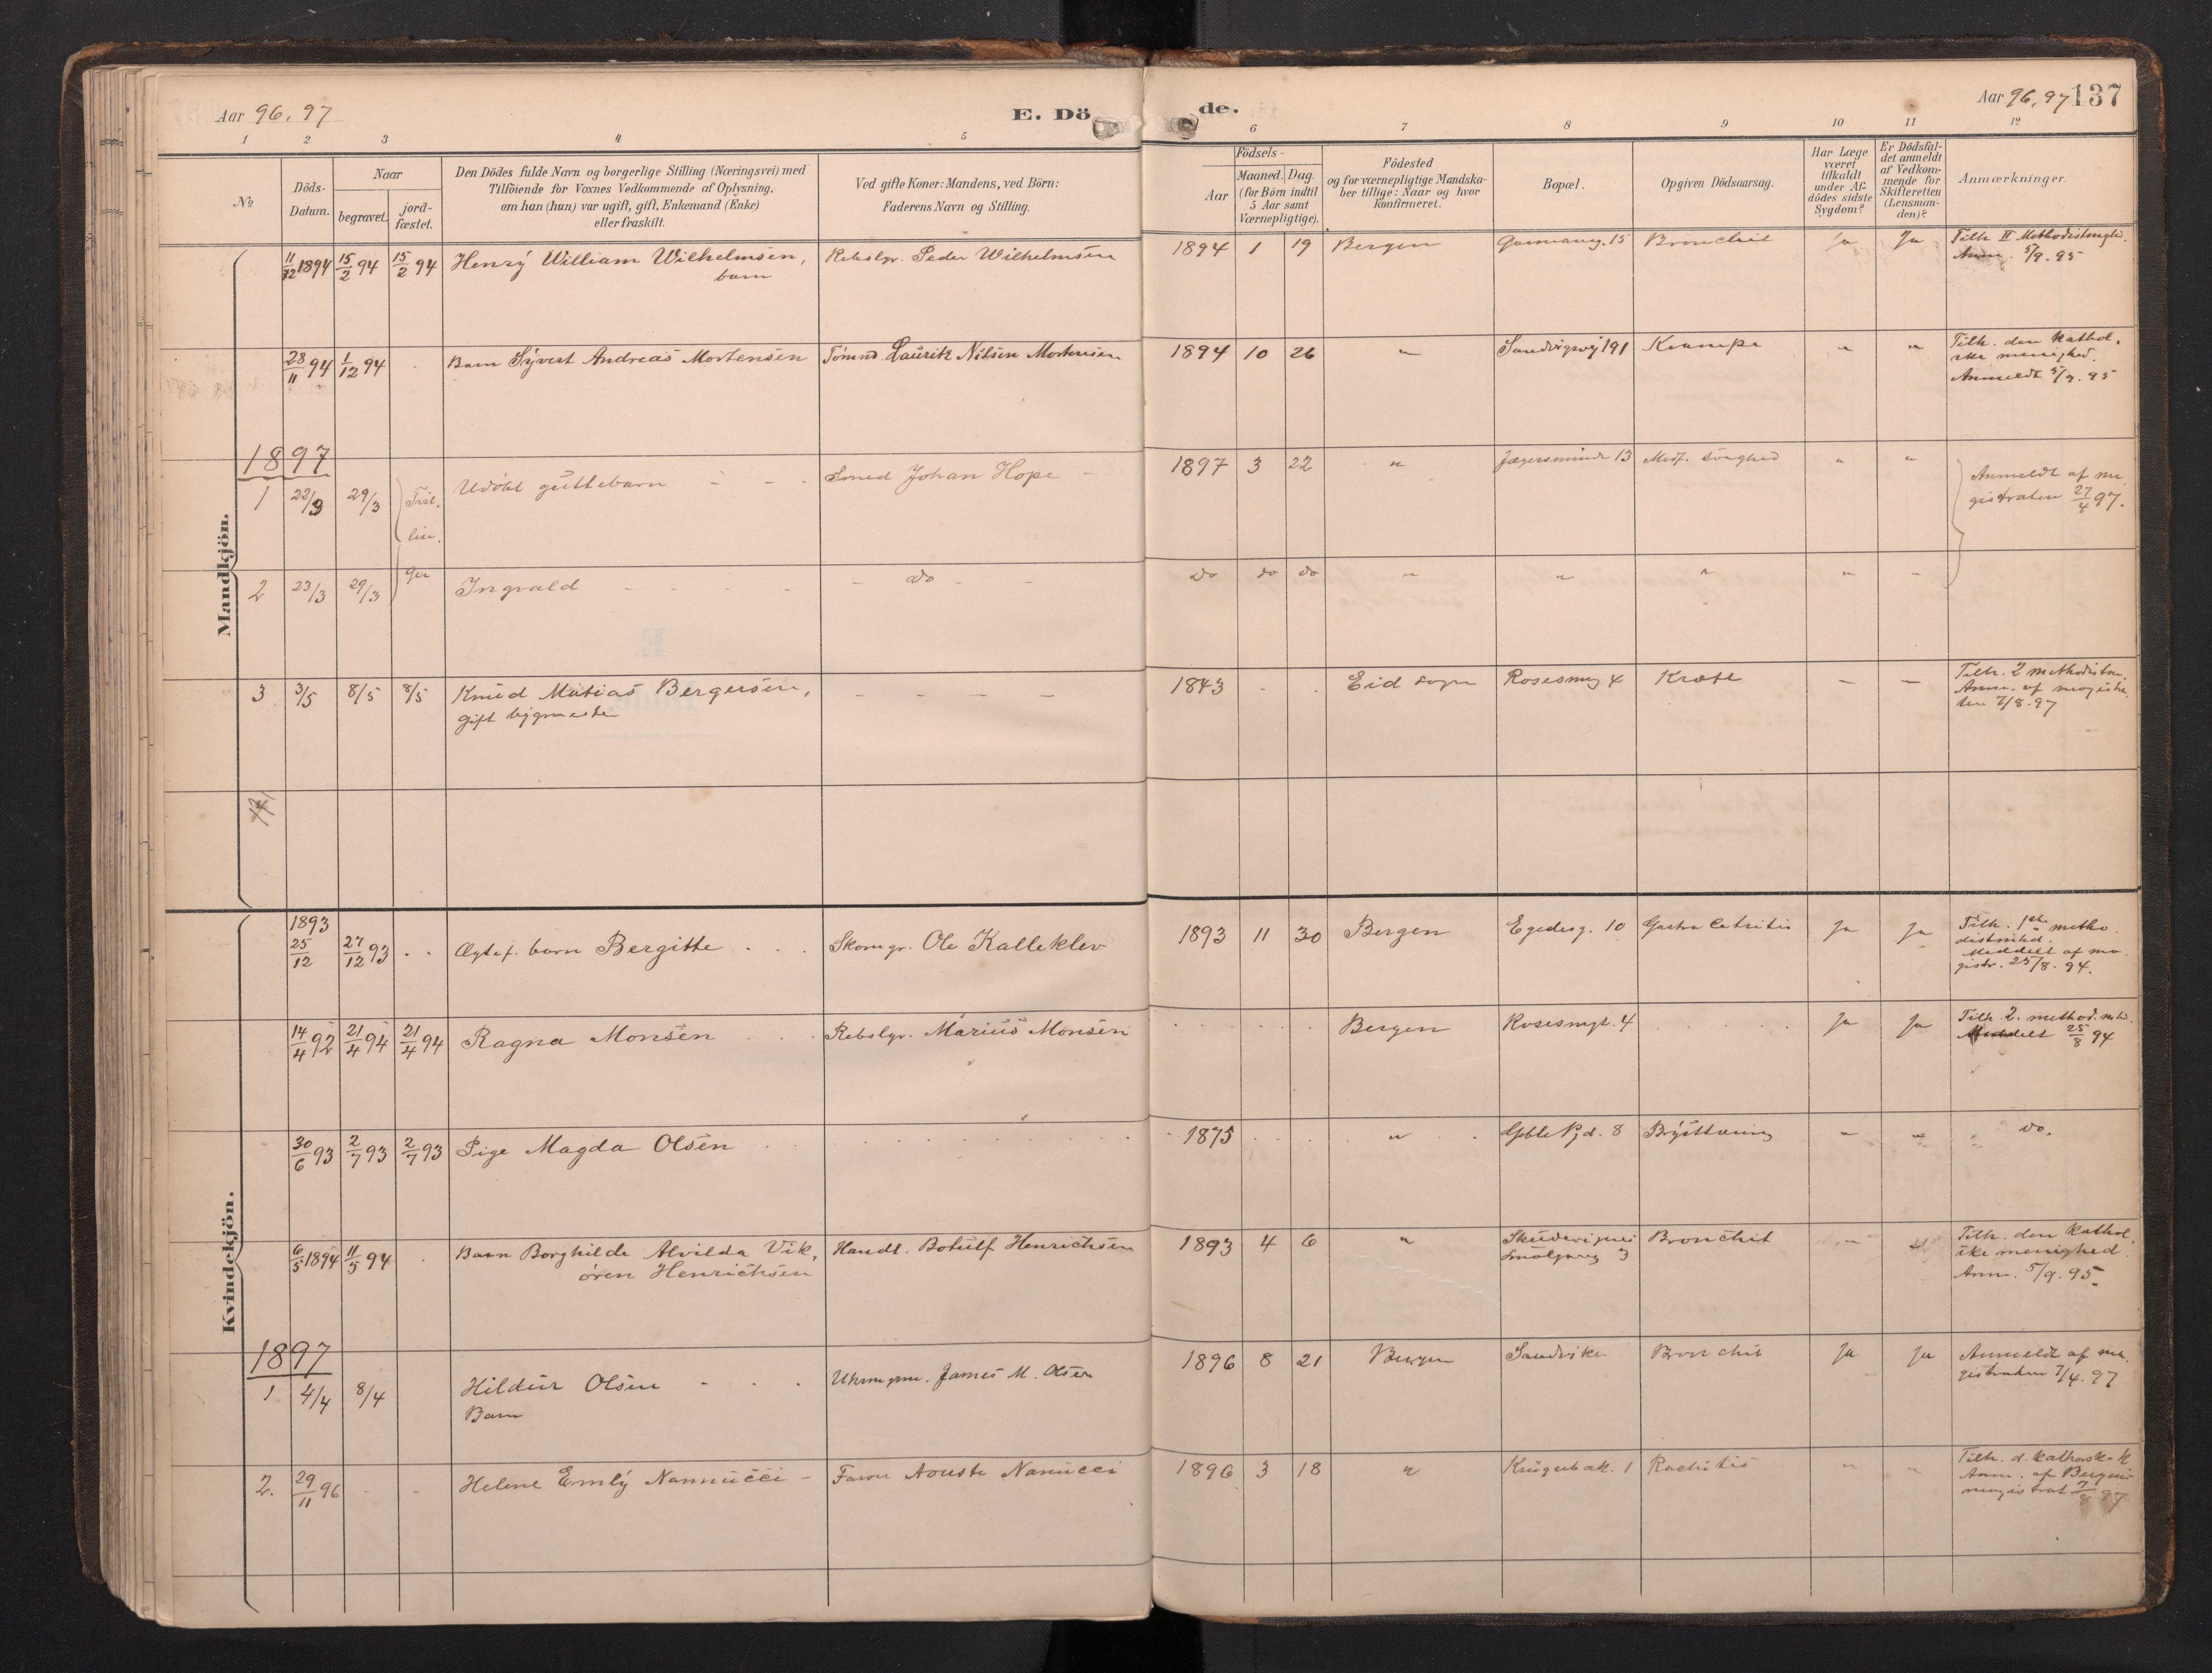 Aar 96, 97
E. Dö
de.
Aar 96, 97 137
1 2 3 4 5 6 7 8 9 10 11 12
No
Döds-
Datum.
Naar
begravet.
jord-
fæstet.
Den Dödes fulde Navn og borgerlige Stilling (Næringsvei) med
Tilföiende for Voxnes Vedkommende af Oplysning,
om han (hun) var ugift, gift, Enkemand (Enke)
eller fraskilt.
Ved gifte Koner: Mandens, ved Börn:
Faderens Navn og Stilling.
Födsels-
Aar
Maaned. Dag.
(for Börn indtil
5 Aar samt
Værnepligtige).
Födested
og for værnepligtige Mandska-
ber tillige: Naar og hvor
konfirmeret.
Bopæl.
Opgiven Dödsaarsag.
Har Læge
været
tilkaldt
under Af-
dödes sidste
Sygdom?
Er Dödsfal-
det anmeldt
af Vedkom-
mende for
Skifteretten
(Lensman-
den)?
Anmærkninger.
Mandkjön.
11/12 1894 15/2 94 15/2 94 Henry William Wilhelmsen, Rebslgr. Peder Wilhelmsen 1894 1 19 Bergen 15 Bronchit Ja Ja Tilh. II Methodistmgh.
barn Anm. 5/9. 95
28/11 94 1/12 94 Barn Syvert Andreas Mortensen Tömnd. Lauritz Nilsen Mortensen 1894 10 26 " Sandvigsvej 191 Krampe " " Tilh. den kathol.
ske menighed.
Anmeldt 5/9. 95
1897
1 22/3 29/3 Tvil- Udöbt guttebarn - - - Smed Johan Hope - 1897 3 22 " Jægersminde 13 Medf. svaghed " " Anmeldt af ma
gistraten 27/4 97.
lin.
2 23/3 29/3 ger Ingvald - - - - - do - - do do do " " " " -
3 3/5 8/5 8/5 Knud Matias Bergersen, - - - - 1843 - . Eid sogn Rosesmug 4 Kræft - - Tilh. 2 methodistm.
gift bygmester Anm. af magistra
ten 7/8. 97
Kvindekjön.
1893
25/12 27/12 93 . . Ægtef. barn Bergitte . . . Skomgr. Ole Kalleklev 1893 11 30 Bergen Egedesg. 10 Ja Ja Tilh. 1ste metho.
distmhd.
Meddelt af ma.
gistr. 25/8. 94.
14/4 92 21/4 94 21/4 94 Ragna Monsen . . . Rebslgr. Marius Monsen . . . . Bergen Rosesmgt. 4 . . . Ja Ja Tilh. 2. method. mhd.
Meddelt 25/8 94
30/6 93 2/7 93 2/7 93 Pige Magda Olsen . . . . 1875 . . . " . . 8 Brysttæring " " do.
6/5 1894 11/5 94 . Barn Borghilde Alvilda Vik, Handl. Botulf Henrichsen 1893 4 6 " Bronchit " " Tilh. den kathol.
ören Henrichsen Smalgang 3 ske menighed.
Anm. 5/9. 95.
1897
1 4/4 8/4 Hildur Olsen - . . . James M. Olsen 1896 8 21 Bergen Sandviken Bronchit Ja Ja Anmeldt af ma.
Barn gistraten 7/4. 97
2. 29/11 96 - - Helene Emly Nannucci - Farver Aouste Nanucci 1896 3 18 " Krügerbak. 1 Rachitis " " Tilh. d. kathorske k
Anm. af Bergens
magistrat 7/8 97